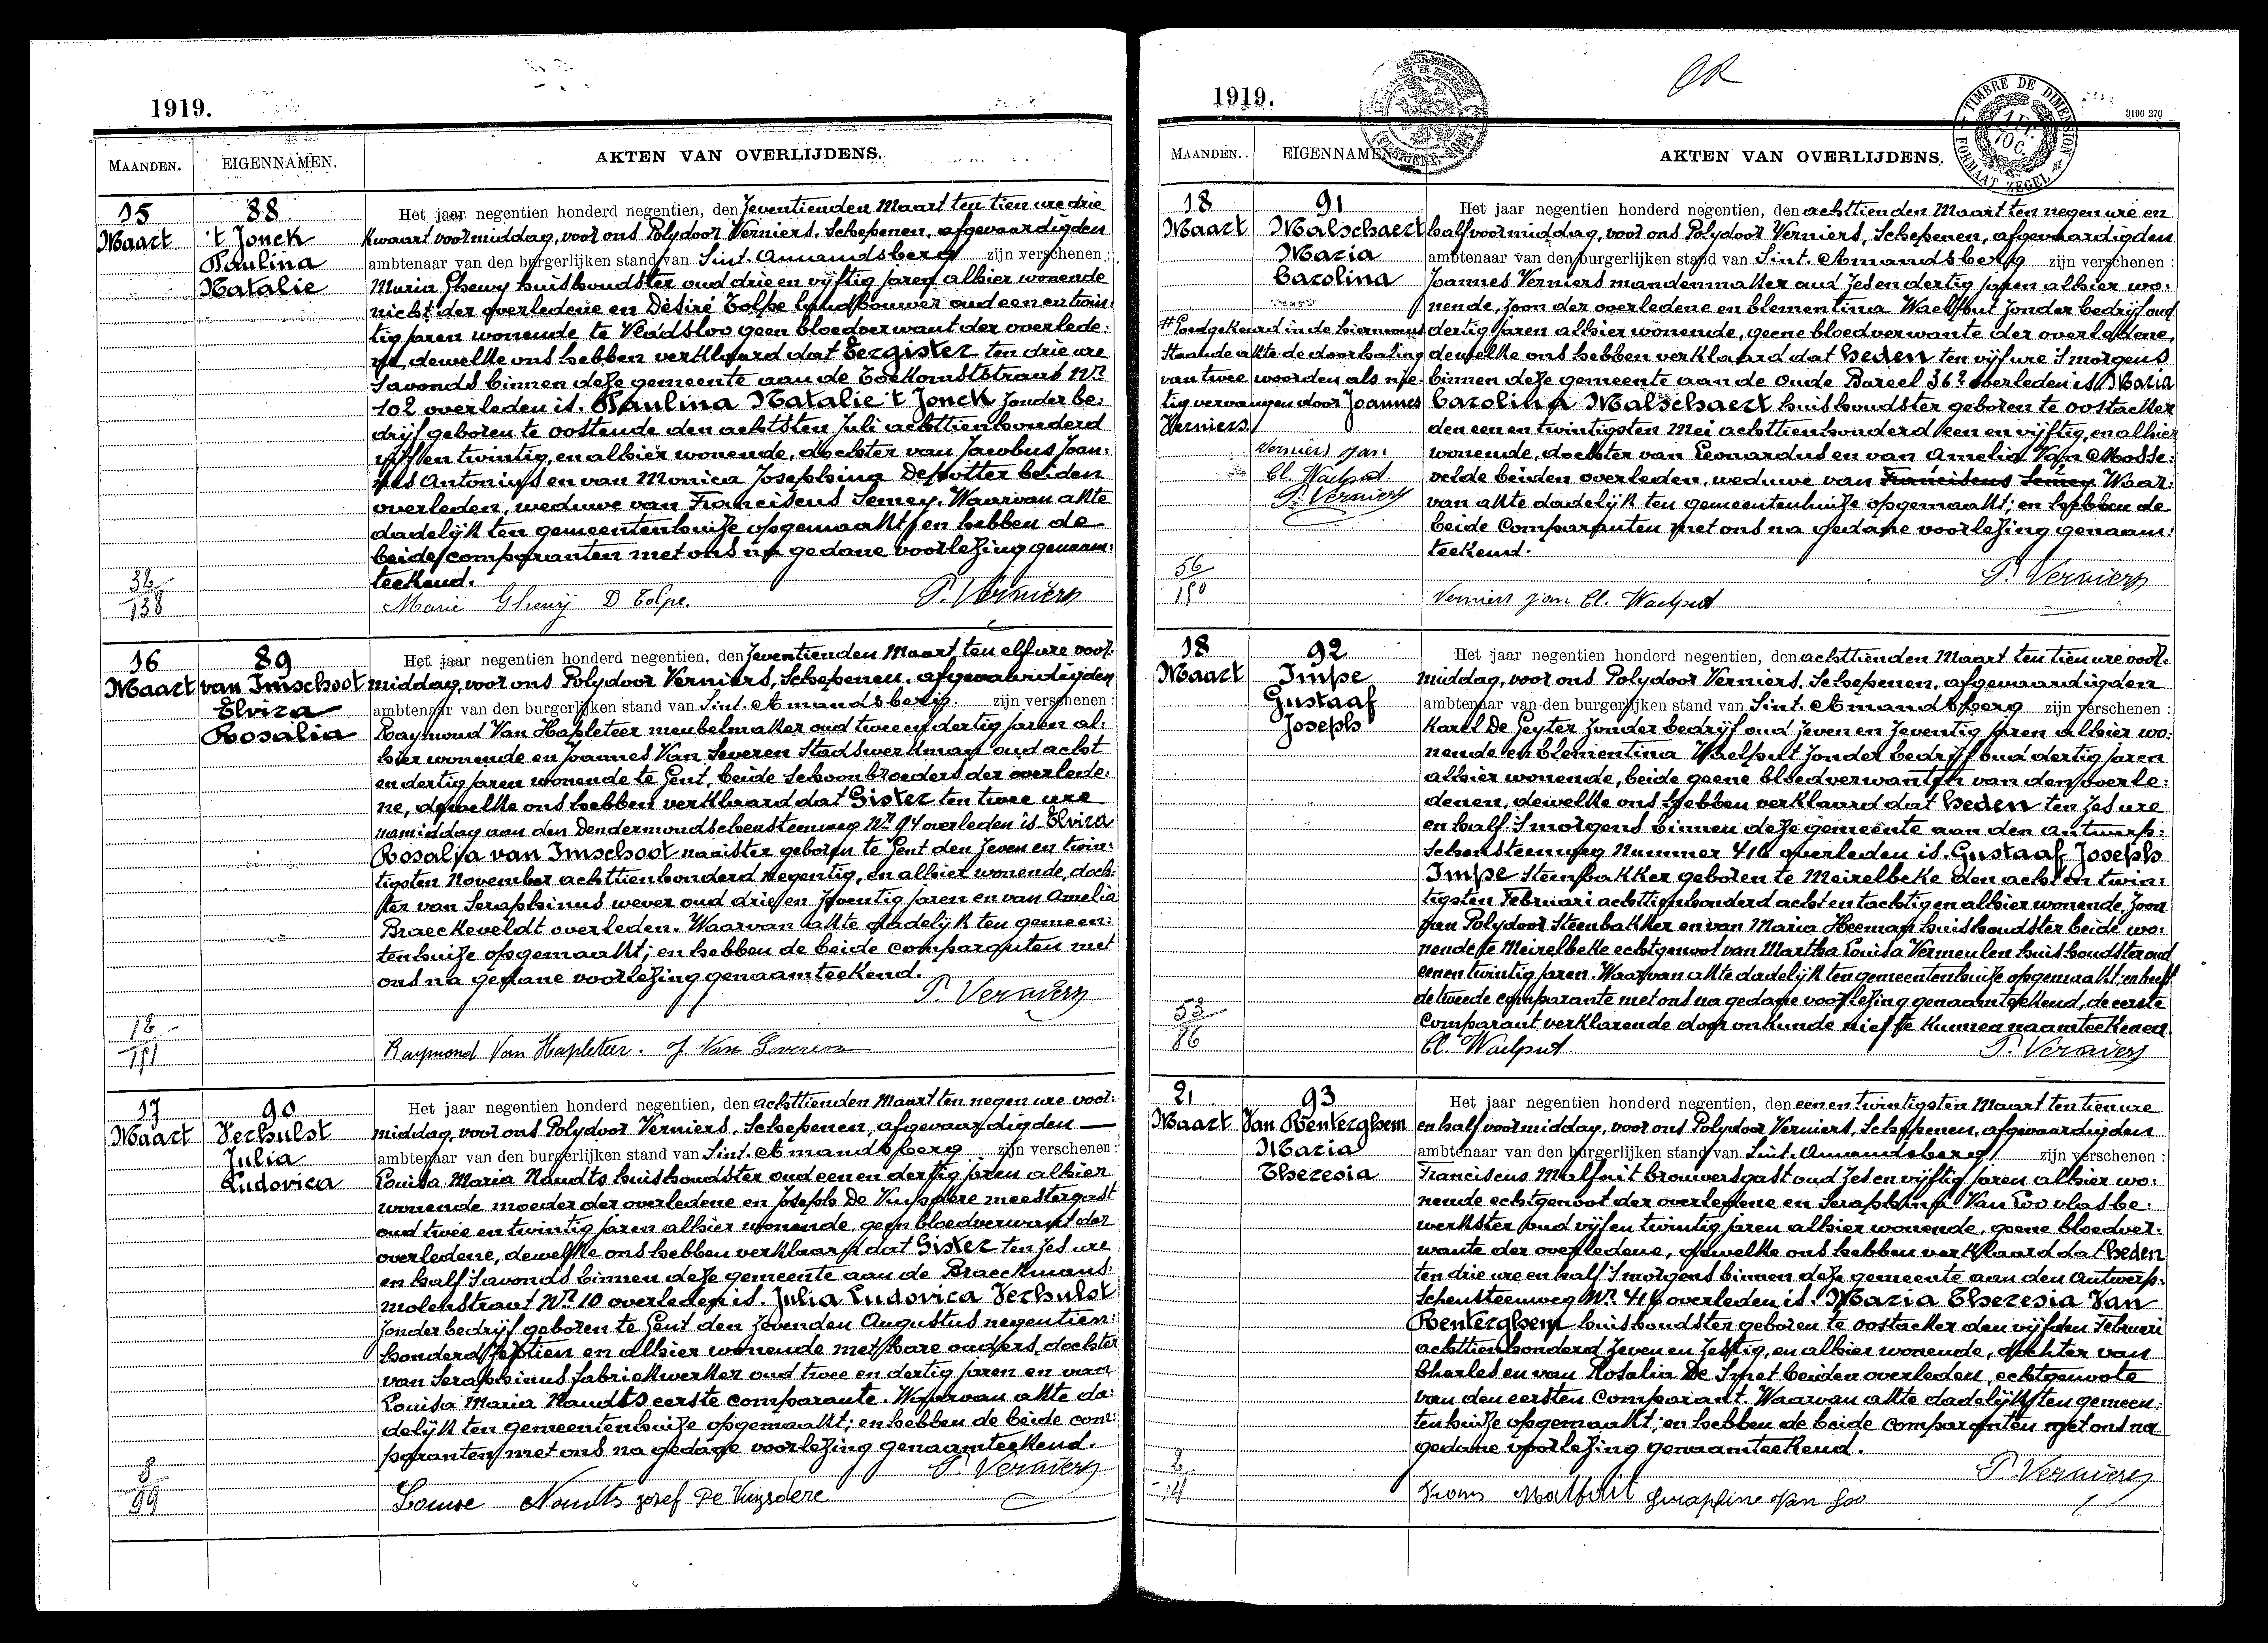 1919.
MAANDEN.
EIGENNAMEN.
AKTEN VAN OVERLIJDENS.
15
Maart
88
't Jonck
Paulina
Natalie
Het jaar negentien honderd negentien, den Zeventienden Maart ten tien ure drie
kwaart voormiddag, voor ons Polydoor Verniers, Schepenen, afgevaardigden
ambtenaar van den burgerlijken stand van Sint. Amandsberg zijn verschenen :
Maria Gheury huishoudster oud drie en vijftig jaren alhier wonende
nicht der overledene en Désiré Tolpe landbouwer oud een en twin:
tig jaren wonende te Vladsloo geen bloedverwant der overlede:
ne, dewelke ons hebben verklaard dat Eergister ten drie ure
's avonds binnen deze gemeente aan de Toekomststraat Nr
102 overleden is. Paulina Natalie 't Jonck zonder be:
drijf geboren te Oostende den achtsten Juli achttienhonderd
vijf en twintig, en alhier wonende, dochter van Jacobus Joan:
nes Antonius en van Monica Josephina Depotter beiden
overleden, weduwe van Franciscus Semey. Waarvan akte
dadelijk ten gemeentenhuize opgemaakt; en hebben de
beide comparanten met ons na gedane voorlezing genaam:
teekend.
32
138
Marie Gheury D Tolpe. P. Verniers
16
Maart
89
van Imschoot
Elvira
Rosalia
Het jaar negentien honderd negentien, den Zeventienden Maart ten elf ure voor:
middag, voor ons Polydoor Verniers, Schepenen, afgevaardigden
ambtenaar van den burgerlijken stand van Sint. Amandsberg zijn verschenen :
Raymond Van Hapleteer meubelmaker oud twee en dertig jaren al:
hier wonende en Joannes Van Severen Stadswerkman oud acht
en dertig jaren wonende te Gent, beide Schoonbroeders der overlede:
ne, dewelke ons hebben verklaard dat Gister ten twee ure
namiddag aan den Dendermondschensteenweg Nr 94 overleden is Elvira
Rosalia van Imschoot naaister geboren te Gent den Zeven en twin:
tigsten November achttienhonderd negentig, en alhier wonende, doch:
ter van Seraphinus wever oud drie en zeventig jaren en van Amelia
Braeckeveldt overleden. Waarvan akte dadelijk ten gemeen:
tenhuize opgemaakt; en hebben de beide comparanten met
ons na gedane voorlezing genaamteekend.
P. Verniers
12
151
Raymond Van Hapleteer. J. Van Severen
17
Maart
90
Verhulst
Julia
Ludovica
Het jaar negentien honderd negentien, den achttienden Maart ten negen ure voor:
middag, voor ons Polydoor Verniers, Schepenen, afgevaardigden
ambtenaar van den burgerlijken stand van Sint. Amandsberg zijn verschenen :
Louisa Maria Naudts huishoudster oud een en dertig jaren alhier
wonende moeder der overledene en Joseph De Kuysdere meestergast
oud twee en twintig jaren alhier wonende, geen bloedverwant der
overledene, dewelke ons hebben verklaard dat Gister ten zes ure
en half 's avonds binnen deze gemeente aan de Braeckmans:
molenstraat Nr 10 overleden is. Julia Ludovica Verhulst
zonder bedrijf geboren te Gent den zevenden Augustus negentien:
honderd zestien en alhier wonende met hare ouders, dochter
van Seraphinus fabriekwerker oud twee en dertig jaren en van
Louisa Maria Naudts eerste comparante. Waarvan akte da:
delijk ten gemeentenhuize opgemaakt; en hebben de beide com:
paranten met ons na gedane voorlezing genaamteekend.
P. Verniers
8
99
Louise Naudts Jozef De Kuysdere
1919.
OR
TIMBRE DE DIMENSION
FORMAAT ZEGEL
3190 270
MAANDEN.
EIGENNAMEN
AKTEN VAN OVERLIJDENS.
18
Maart
91
Malschaert
Maria
Carolina
# Goedgekeurd in de hiernevens
staande akte de doorhaling
van twee woorden als nie:
tig vervangen door Joannes
Verniers.
Verniers Jan.
Cl. Waelput
P. Verniers
Het jaar negentien honderd negentien, den achttienden Maart ten negen ure en
half voormiddag, voor ons Polydoor Verniers, Schepenen, afgevaardigden
ambtenaar van den burgerlijken stand van Sint. Amandsberg zijn verschenen :
Joannes Verniers mandenmaker oud zes en dertig jaren alhier wo:
nende, zoon der overledene en Clementina Waelput zonder bedrijf oud
dertig jaren alhier wonende, geene bloedverwante der overledene,
dewelke ons hebben verklaard dat heden ten vijf ure 's morgens
binnen deze gemeente aan de Oude Bareel 362 overleden is Maria
Carolina Malschaert huishoudster geboren te Oostacker
den een en twintigsten Mei achttienhonderd een en vijftig, en alhier
wonende, dochter van Leonardus en van Amelia Van Mosse:
velde beiden overleden, weduwe van Franciscus Semey. Waar:
van akte dadelijk ten gemeentenhuize opgemaakt; en hebben de
beide comparanten met ons na gedane voorlezing genaam:
teekend.
P. Verniers
56
150
Verniers Jan Cl. Waelput
18
Maart
92
Impe
Gustaaf
Joseph
Het jaar negentien honderd negentien, den achttienden Maart ten tien ure voor:
middag, voor ons Polydoor Verniers, Schepenen, afgevaardigden
ambtenaar van den burgerlijken stand van Sint. Amandsberg zijn verschenen :
Karel De Geyter zonder bedrijf oud zeven en zeventig jaren alhier wo:
nende en Clementina Waelput zonder bedrijf oud dertig jaren
alhier wonende, beide geene bloedverwanten van den overle:
denen, dewelke ons hebben verklaard dat heden ten zes ure
en half 's morgens binnen deze gemeente aan den Antwerp:
schensteenweg Nummer 416 overleden is. Gustaaf Joseph
Impe steenbakker geboren te Meirelbeke den acht en twin:
tigsten Februari achttienhonderd acht en tachtig en alhier wonende, zoon
van Polydoor steenbakker en van Maria Heeman huishoudster beide wo:
nende te Meirelbeke echtgenoot van Martha Louisa Vermeulen huishoudster oud
een en twintig jaren. Waarvan akte dadelijk ten gemeentenhuize opgemaakt; en heeft
de tweede comparante met ons na gedane voorlezing genaamteekend, de eerste
comparant verklarende door onkunde niet te kunnen naamteekenen.
53
86
Cl. Waelput. P. Verniers
21
Maart
93
Van Renterghem
Maria
Theresia
Het jaar negentien honderd negentien, den een en twintigsten Maart ten tien ure
en half voormiddag, voor ons Polydoor Verniers, Schepenen, afgevaardigden
ambtenaar van den burgerlijken stand van Sint. Amandsberg zijn verschenen :
Franciscus Malfait brouwersgast oud zes en vijftig jaren alhier wo:
nende echtgenoot der overledene en Seraphina Van Loo vlasbe:
werkster oud vijf en twintig jaren alhier wonende, geene bloedver:
wante der overledene, dewelke ons hebben verklaard dat heden
ten drie ure en half 's morgens binnen deze gemeente aan den Antwerp:
schensteenweg Nr 416 overleden is. Maria Theresia Van
Renterghem huishoudster geboren te Oostacker den vijfden Februari
achttienhonderd zeven en zestig, en alhier wonende, dochter van
Charles en van Rosalia De Smet beiden overleden, echtgenoote
van den eersten comparant. Waarvan akte dadelijk ten gemeen:
tenhuize opgemaakt; en hebben de beide comparanten met ons na
gedane voorlezing genaamteekend.
P. Verniers
2
14
Frans Malfait Seraphine Van Loo